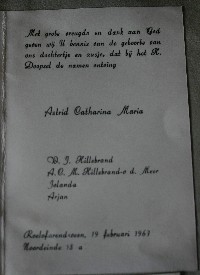 Met grote vreugde en dank aan God
geven wij U kennis van de geboorte van
ons dochtertje en zusje, dat bij het H.
Doopsel de namen ontving
Astrid Catharina Maria
J. Hillebrand
A. C. M. Hillebrand-v d. Meer
Jolanda
Arjan
Roelofarendsveen, 19 februari 1963
Noordeinde 18 a